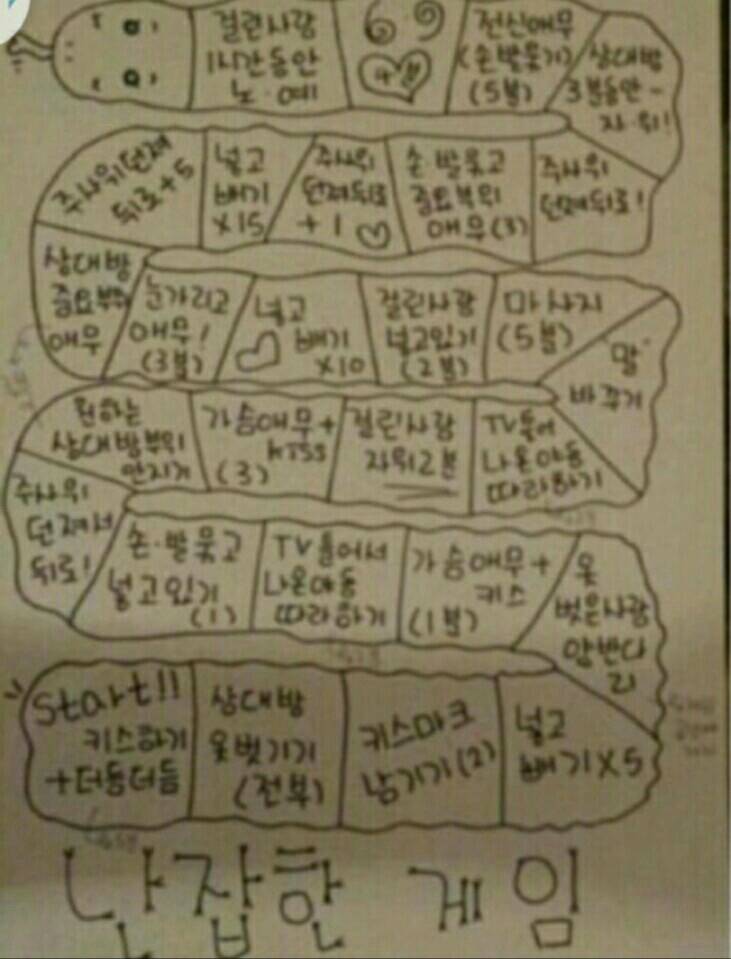 Start!!
키스하기
+더듬더듬
상대방
옷벗기기
(전부)
키스마크
남기기(2)
넣고
빼기X5
옷
벗은사람
손·발묶고
넣고있기
(1)
TV틀어서
나온야동
따라하기
가슴애무+
키스
(1분)
주사위
던져서
뒤로!
원하는
상대방부위
만지기
가슴애무+
KISS
(3)
걸린사람
자위2분
TV틀어
나온야동
따라하기
"말"
바꾸기
상대방
중요부위
애무
눈가리고
애무!
(3분)
넣고
빼기
X10
걸린사람
넣고있기
(2분)
마사지
(5분)
주사위던져
뒤로+5
넣고
빼기
X15
주사위
던져뒤로
+1
손·발묶고
중요부위
애무(3)
주사위
던져뒤로!
걸린사람
1시간동안
노·예
69
전신애무
(손발묶기)
(5분)
상대방
3분동안
자·위!
난잡한 게임